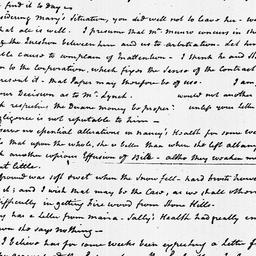 find it to Day —
sidering Mary's Situation, you did well not to leave her —
that all is well. I presume that Mr. Munro concurs in th
g the Question between him and us to arbitration. Let hi
ble cause to complain of Inattention. I think he and
on to the Corporation, which fixes the Sense of the Contract
present it — that Paper may therefore be of use. I am
our Decision as to Mr. Lynch. would not another
requisite the Duane money be proper? unless you
eligence is not reputable to him —
no especial alterations in Nancy's Health for some we
that upon the whole, she is better than when she left Albany
another copious Effusion of Bile — altho they weaken
little.
ground was soft & wet when the Snow fell — hard
it; and I wish that may be the Case, as we shall other
Difficulty in getting Fire wood from Stone Hill.
has a Letter from maria. Sally's Health had greatly
she says nothing —
I believe has for some weeks been expecting a Letter